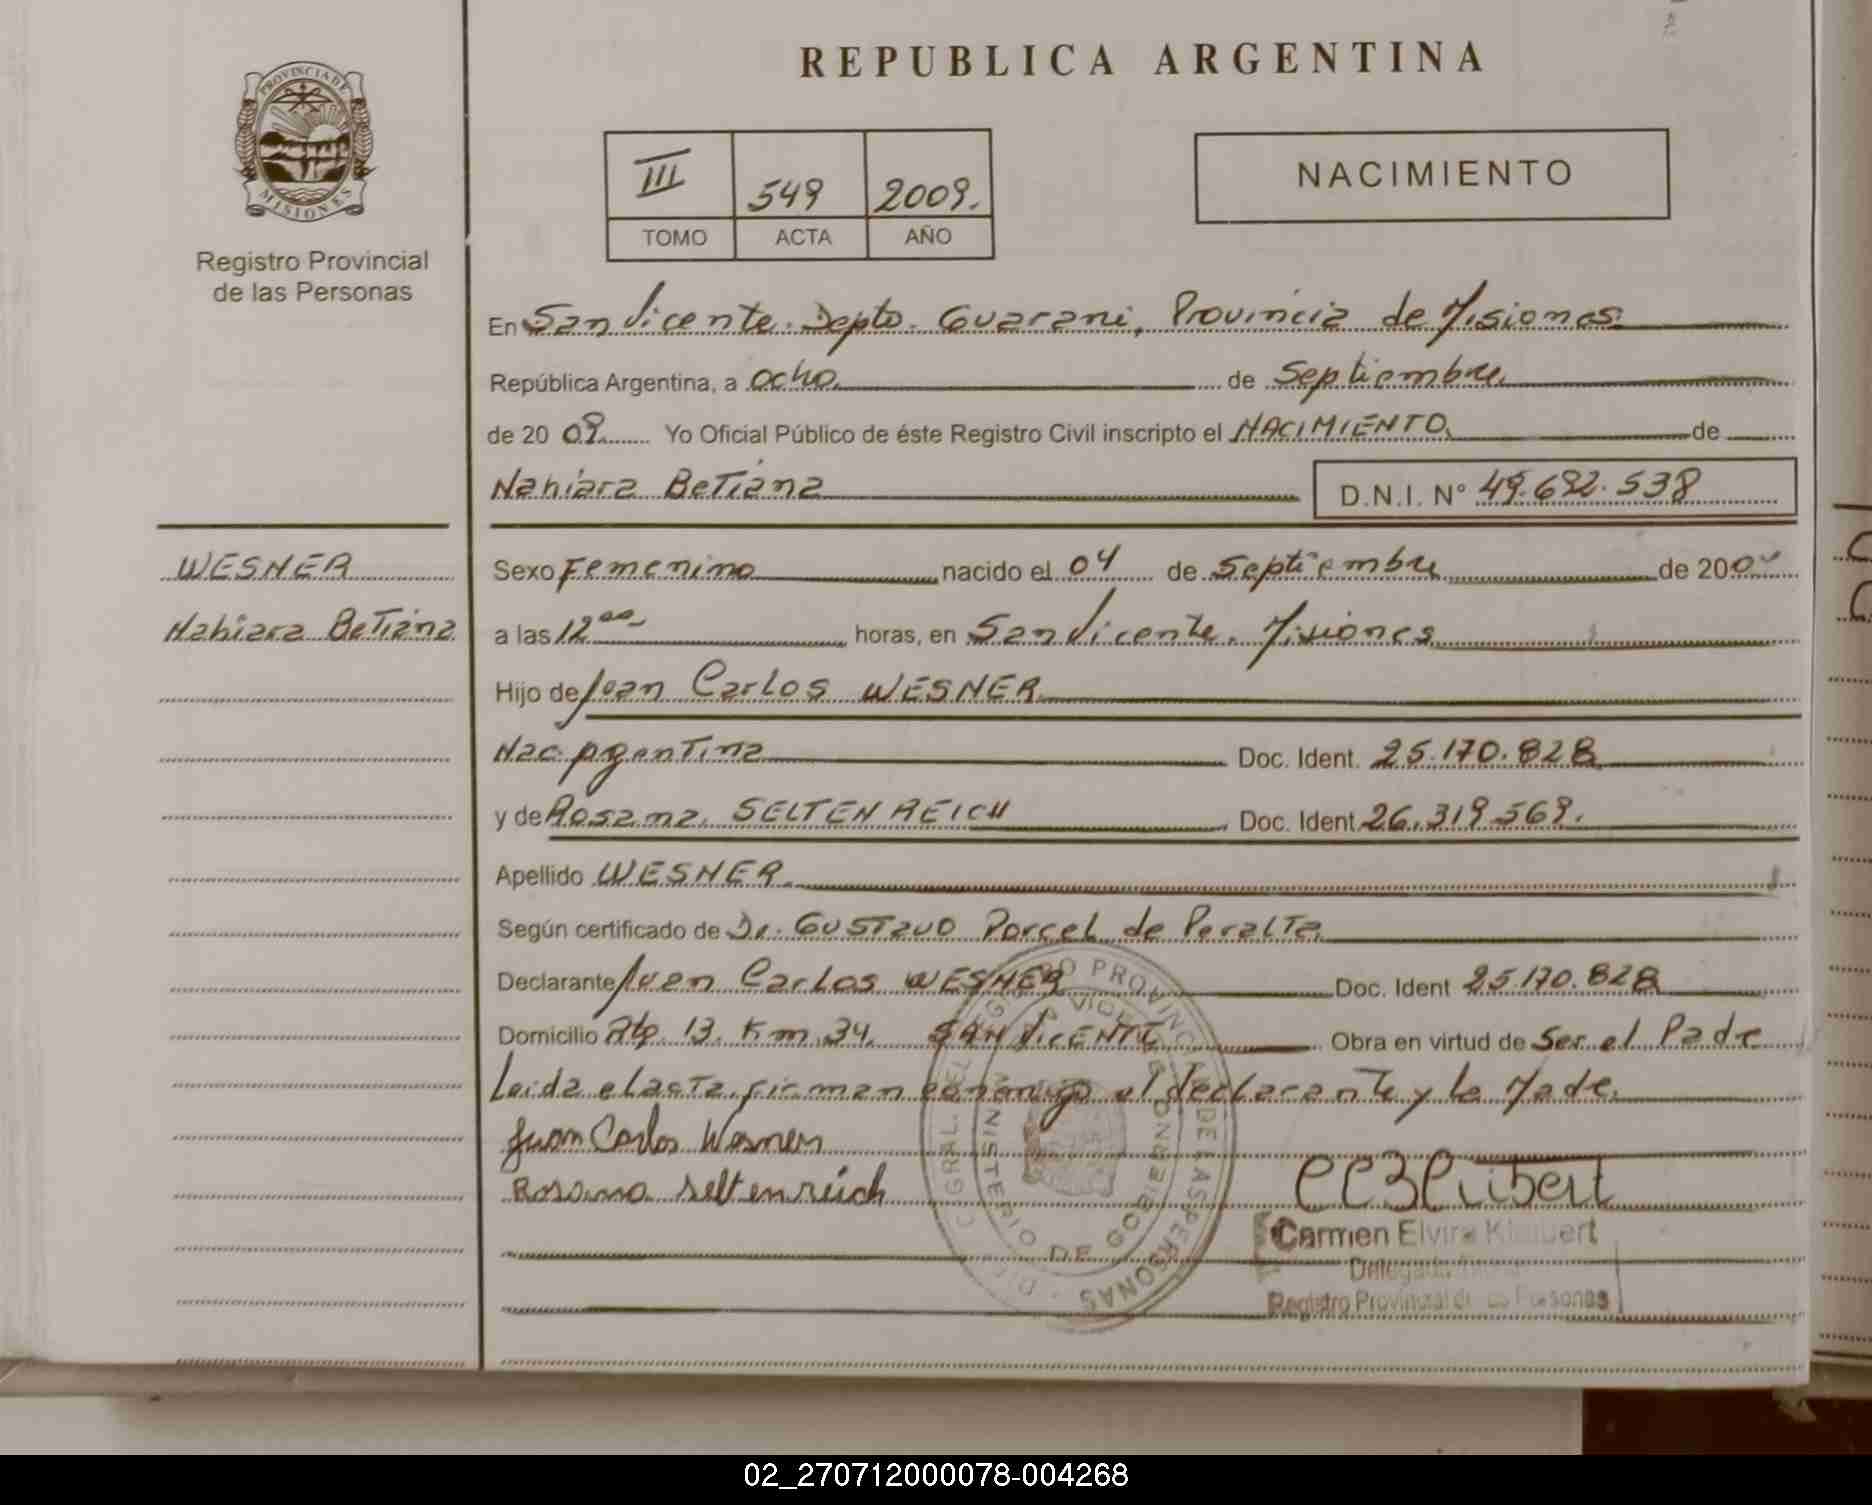 REPUBLICA ARGENTINA
PROVINCIA DE MISIONES
Registro Provincial
de las Personas
III 549 2009.
TOMO ACTA AÑO
NACIMIENTO
En San Vicente. Depto. Guarani, Provincia de Misiones.
República Argentina, a ocho. de Septiembre.
de 20 09. Yo Oficial Público de éste Registro Civil inscripto el NACIMIENTO. de
Nahiara BeTiana D.N.I. N° 49.692.538
WESNER
Nahiara BeTiana
Sexo Femenino nacido el 04 de Septiembre de 200
a las 12 00 horas, en San Vicente. Misiones
Hijo de Juan Carlos WESNER
Nac. Argentina Doc. Ident. 25.170.828
y de Rosana. SELTENREICH Doc. Ident 26.319.569.
Apellido WESNER
Según certificado de Dr. GUSTavo Porcel de PeralTa
Declarante Juan Carlos WESNER Doc. Ident 25.170.828
Domicilio Rta. 13. Km. 34. SAN VICENTE Obra en virtud de Ser el Padre
Leida el acta, firman conmigo el declarante y la Madre.
Juan Carlos Wesner
Rosana Seltenreich
Carmen Elvira
Registro Provincial de las Personas
REGISTRO PROVINCIAL DE LAS PERSONAS
MINISTERIO DE GOBIERNO
02_270712000078-004268